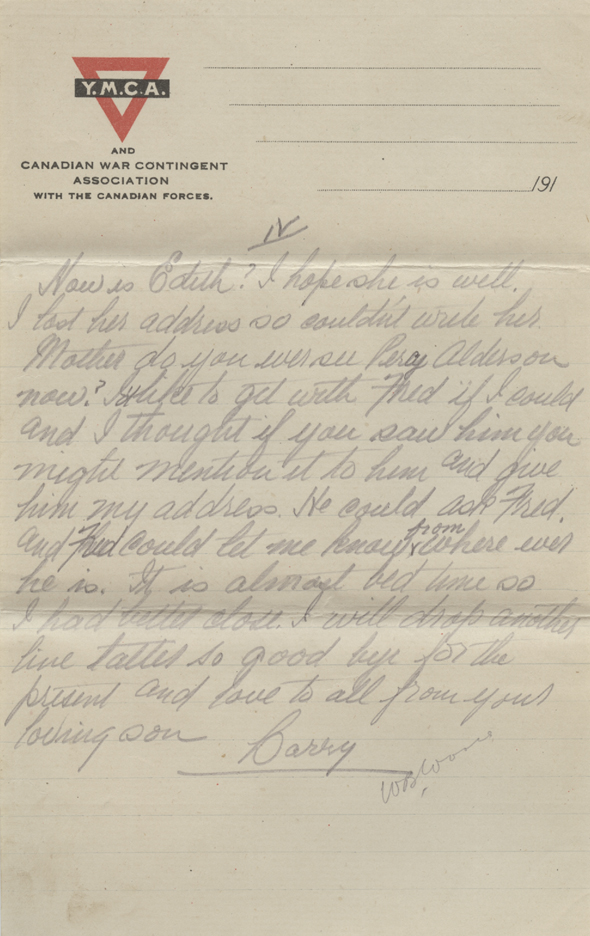 Y.M.C.A.
AND
CANADIAN WAR CONTINGENT
ASSOCIATION
WITH THE CANADIAN FORCES.
191
IV
How is Edith? I hope she is well.
I lost her address so couldn't write her.
Mother do you ever see Percy Alderson
now? I'd like to get with Fred if I could
and I thought if you saw him you
might mention it to him and give
him my address. He could ask Fred.
and Fred could let me know from where ever
he is. It is almost bed time so
I had better close. I will drop another
line latter so good bye for the
present and love to all from your
loving son
Barry